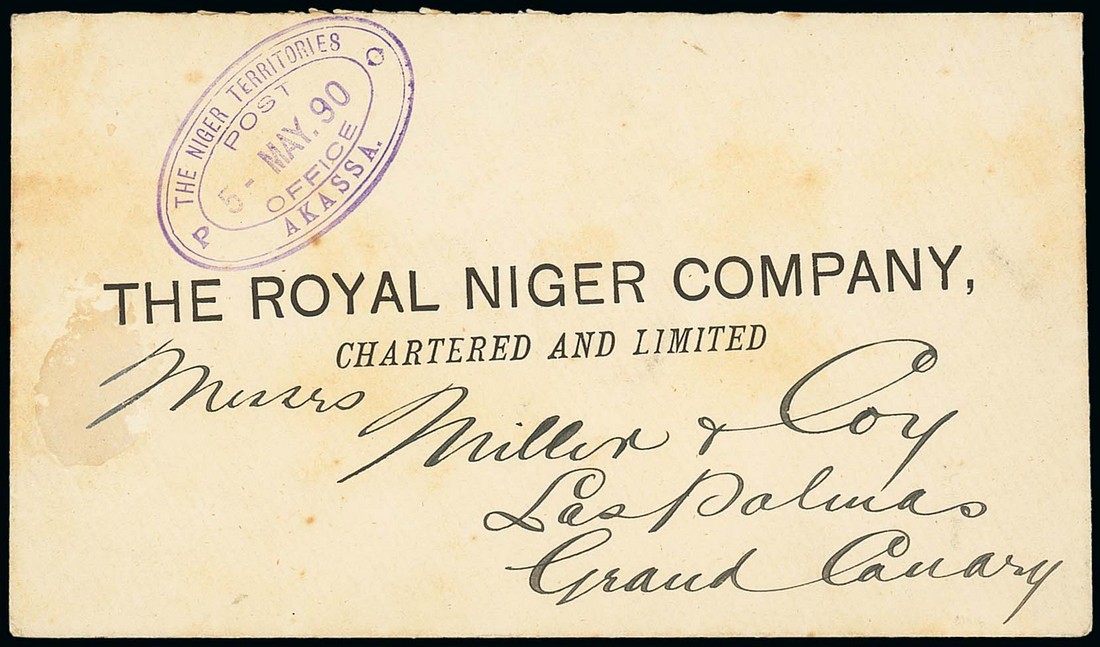 THE NIGER TERRITORIES
POST
5- MAY. 90
OFFICE
AKASSA.
P C
THE ROYAL NIGER COMPANY,
CHARTERED AND LIMITED
Messrs Miller & Coy
Las Palmas
Grand Canary